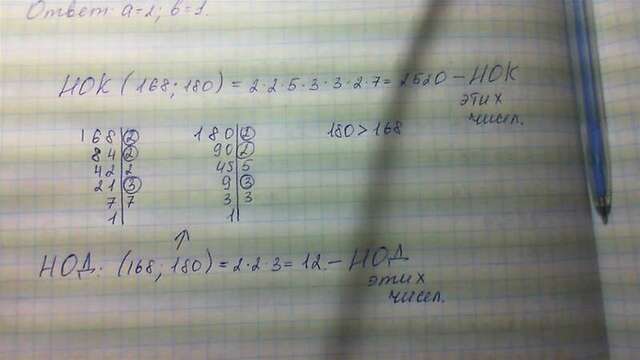 Ответ: a=2; b=1.
НОК (168; 180) = 2·2·5·3·3·2·7 = 2520 – НОК
этих
чисел.
168|2 180|2 180>168
84|2 90|2
42|2 45|5
21|3 9|3
7|7 3|3
1| 1|
НОД: (168; 180) = 2·2·3 = 12. – НОД
этих
чисел.